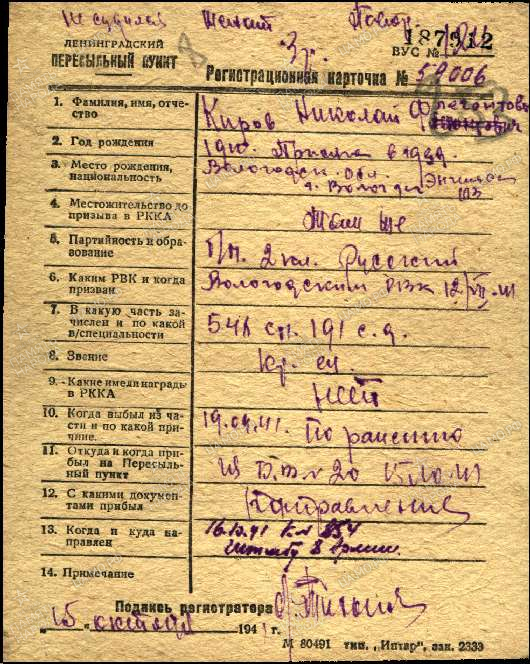 Не судился Женат Повар
187912
ЛЕНИНГРАДСКИЙ
ВУС №
ПЕРЕСЫЛЬНЫЙ ПУНКТ
Регистрационная карточка № 59006
1. Фамилия, имя, отчество
Киров Николай Флегонтов
2. Год рождения
1910. Присяга в 1939.
3. Место рождения, национальность
Вологодск. обл.
г. Вологда
4. Местожительство до призыва в РККА
Там же
5. Партийность и образование
б/п. 2 кл. Русский
6. Каким РВК и когда призван
Вологодским РВК 12/VII-41
7. В какую часть зачислен и по какой в/специальности
546 сп. 191 с.д.
8. Звание
Кр-ец
9. Какие имели награды в РККА
нет
10. Когда выбыл из части и по какой причине.
19.09.41. По ранению
11. Откуда и когда прибыл на Пересыльный пункт
из
12. С какими документами прибыл
направление
13. Когда и куда направлен
16.10.41
8 Армии.
14. Примечание
Подпись регистратора
"15" октября 1941 г.
М 80491 тип. „Интар", зак. 2333